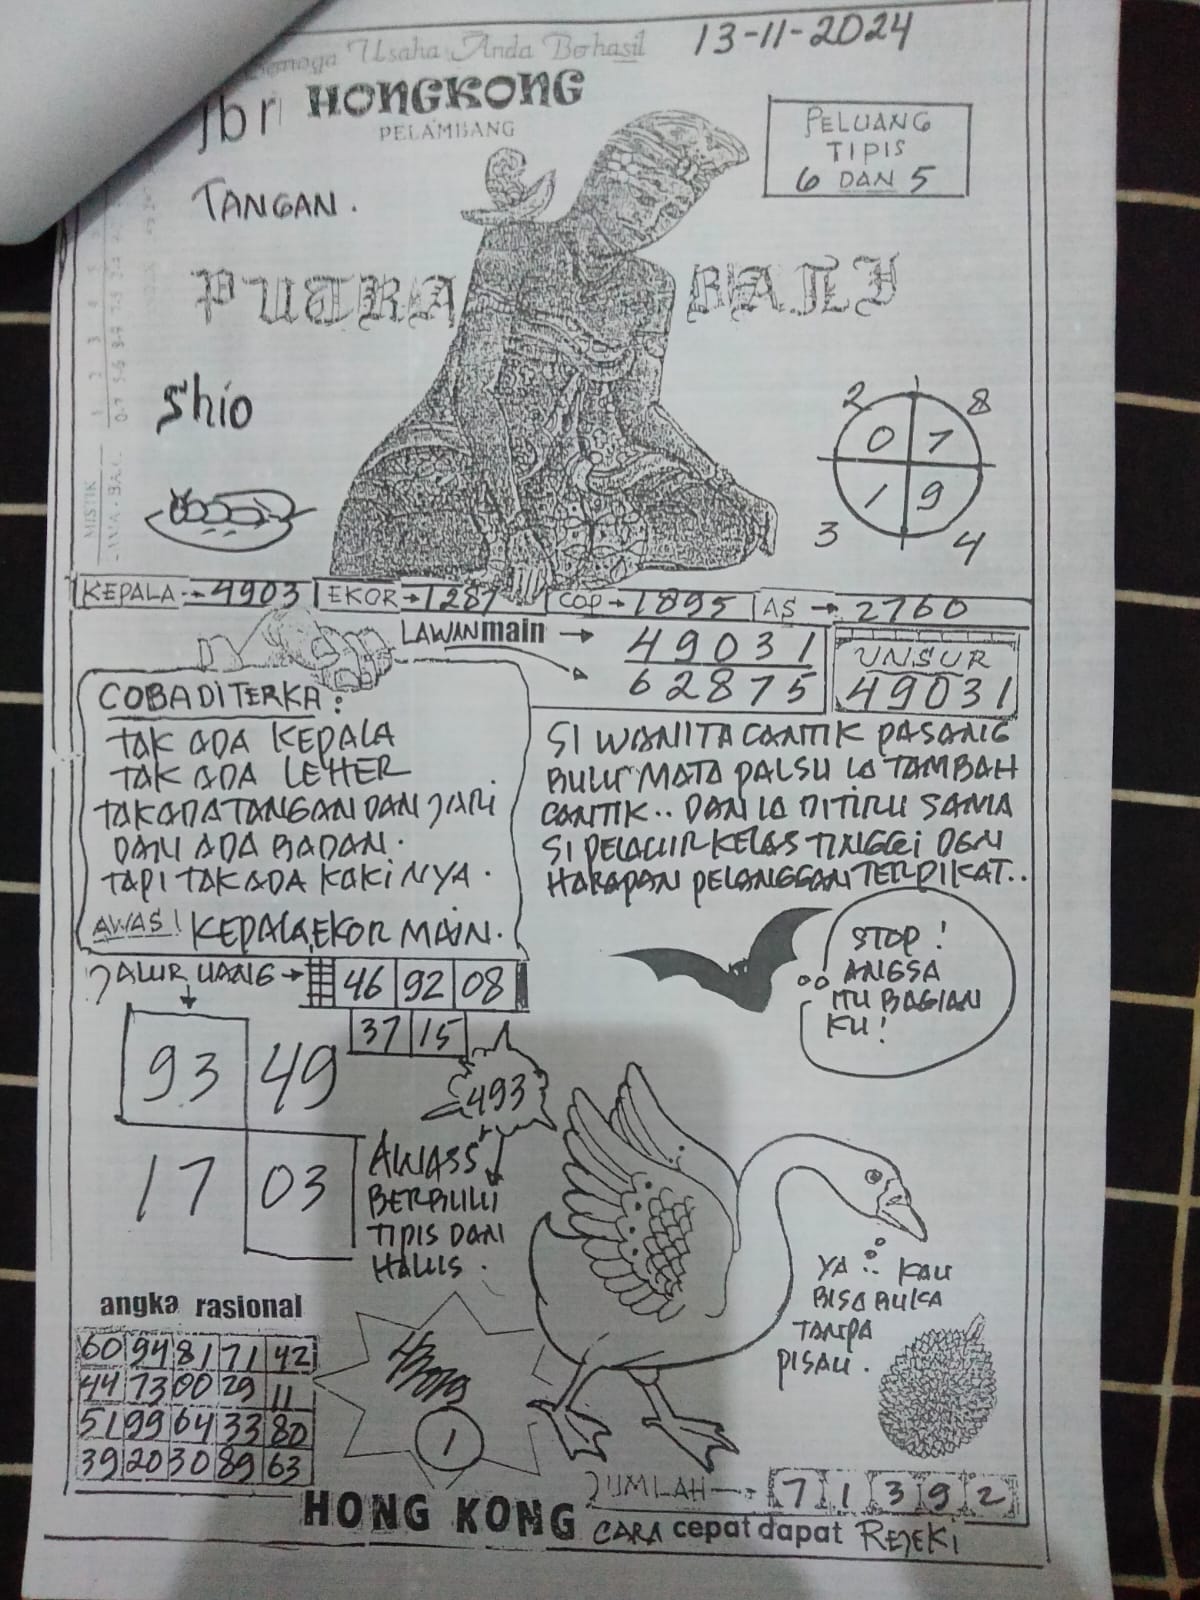 Semoga Usaha Anda Berhasil
13-11-2024
HONGKONG
PELAMBANG
PELUANG
TIPIS
6 DAN 5
TANGAN.
PUTRA BALI
Shio
2 8
0 7
1 9
3 4
MISTIK
KEPALA → 4903
EKOR → 1287
COP → 1895
AS → 2760
LAWAN main → 49031
62875
UNSUR
49031
COBA DITERKA:
TAK ADA KEPALA
TAK ADA LEHER
TAK ADA TANGAN DAN JARI
DAN ADA BADAN.
TAPI TAK ADA KAKI NYA.
AWAS! KEPALA, EKOR MAIN.
SI WANITA CANTIK PASANG
BULU MATA PALSU IA TAMBAH
CANTIK.. DAN IA DITIRU SAMA
SI PELACUR KELAS TINGGI DGN
HARAPAN PELANGGAN TERPIKAT..
JALUR UANG → 46 92 08
37 15
STOP!
ANGSA
ITU BAGIAN
KU!
93 49
17 03
493
AWASS
BERBULU
TIPIS DAN
HALUS.
YA.. KAU
BISA BUKA
TANPA
PISAU.
angka rasional
60 94 81 71 42
44 73 00 29 11
51 99 64 33 80
39 20 30 89 63
1
JUMLAH → 7 1 3 9 2
HONG KONG CARA cepat dapat REJEKI